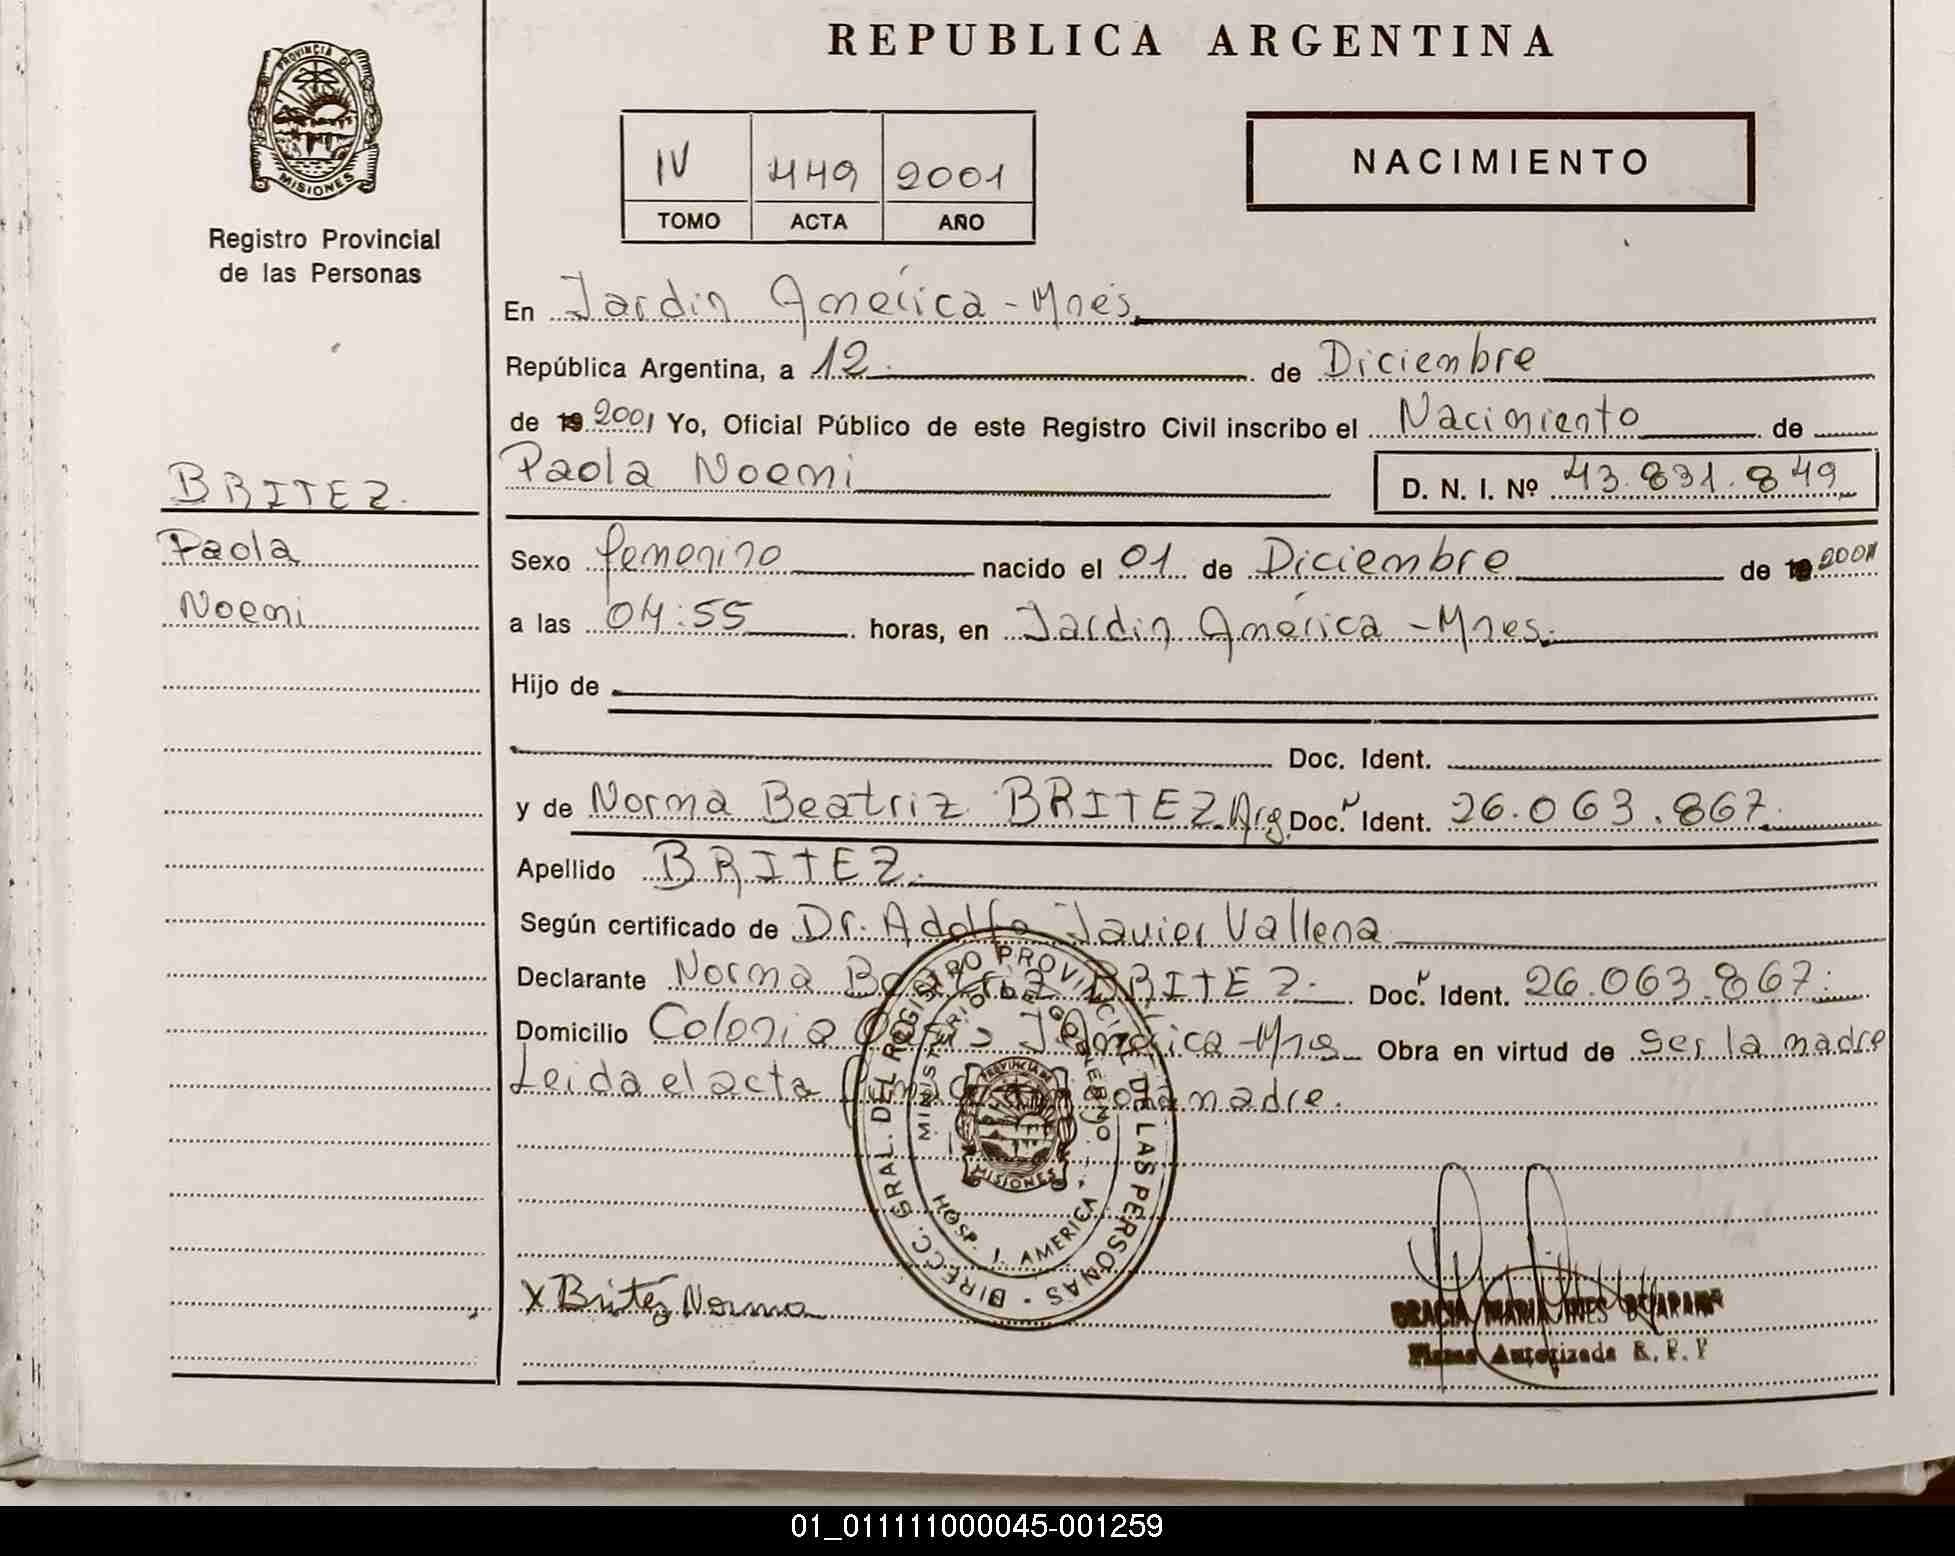 REPUBLICA ARGENTINA
PROVINCIA DE
MISIONES
Registro Provincial
de las Personas
IV 449 2001
TOMO ACTA AÑO
NACIMIENTO
En Jardin América - Mnes.
República Argentina, a 12 de Diciembre
de 19 2001 Yo, Oficial Público de este Registro Civil inscribo el Nacimiento de
Paola Noemi
D. N. I. Nº 43.831.849
BRITEZ
Paola
Noemi
Sexo femenino nacido el 01 de Diciembre de 19 2001
a las 04:55 horas, en Jardin América - Mnes.
Hijo de
Doc. Ident.
y de Norma Beatriz BRITEZ Arg. Doc. Ident. 26.063.867
Apellido BRITEZ
Según certificado de Dr. Adolfo Javier Vallena
Declarante Norma Beatriz BRITEZ Doc. Ident. 26.063.867
Domicilio Colonia J. América - Mnes Obra en virtud de ser la madre
Leida el acta madre.
DIRECC. GRAL. DEL REGISTRO PROVINCIAL DE LAS PERSONAS
MINISTERIO DE GOBIERNO
PROVINCIA DE
MISIONES
HOSP. J. AMERICA
X Britez Norma
MARIA INES
Firma Autorizada R. P. P
01_011111000045-001259